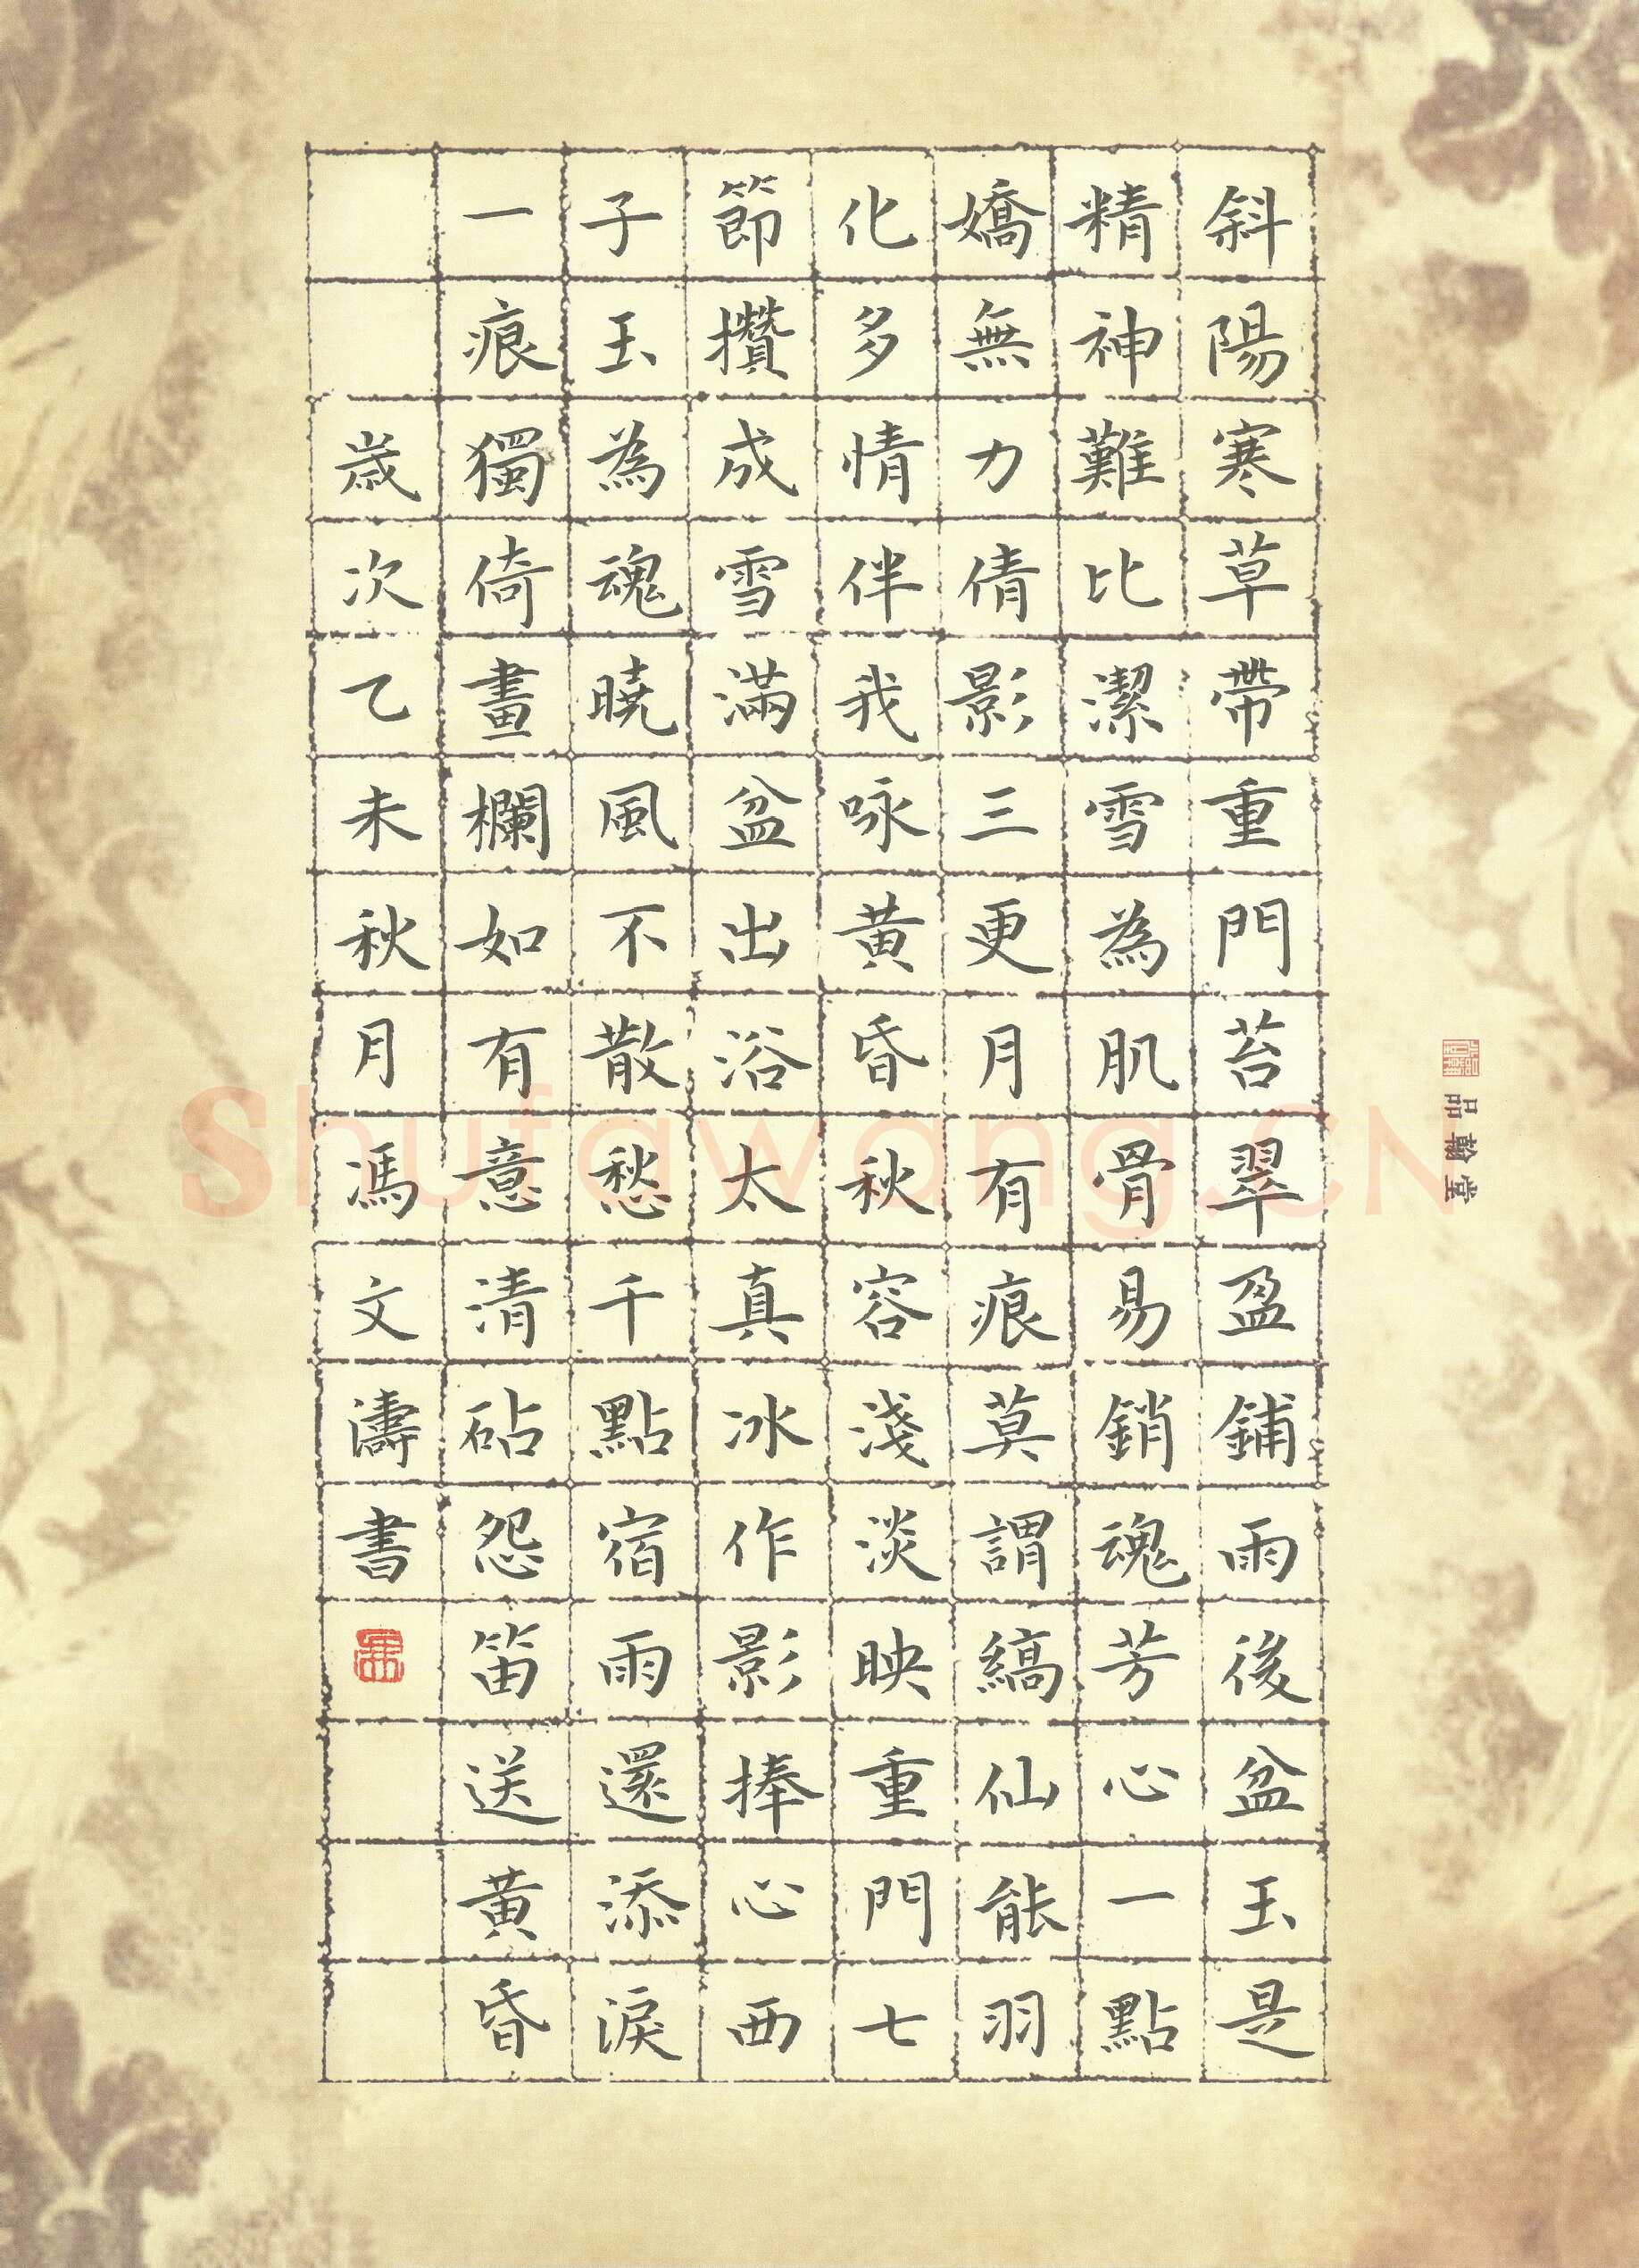 斜陽寒草帶重門苔翠盈鋪雨後盆玉是
精神難比潔雪為肌骨易銷魂芳心一點
嬌無力倩影三更月有痕莫謂縞仙能羽
化多情伴我咏黃昏秋容淺淡映重門七
節攢成雪滿盆出浴太真冰作影捧心西
子玉為魂曉風不散愁千點宿雨還添淚
一痕獨倚畫欄如有意清砧怨笛送黃昏
歲次乙未秋月馮文濤書
品翰堂
Shufawang.CN